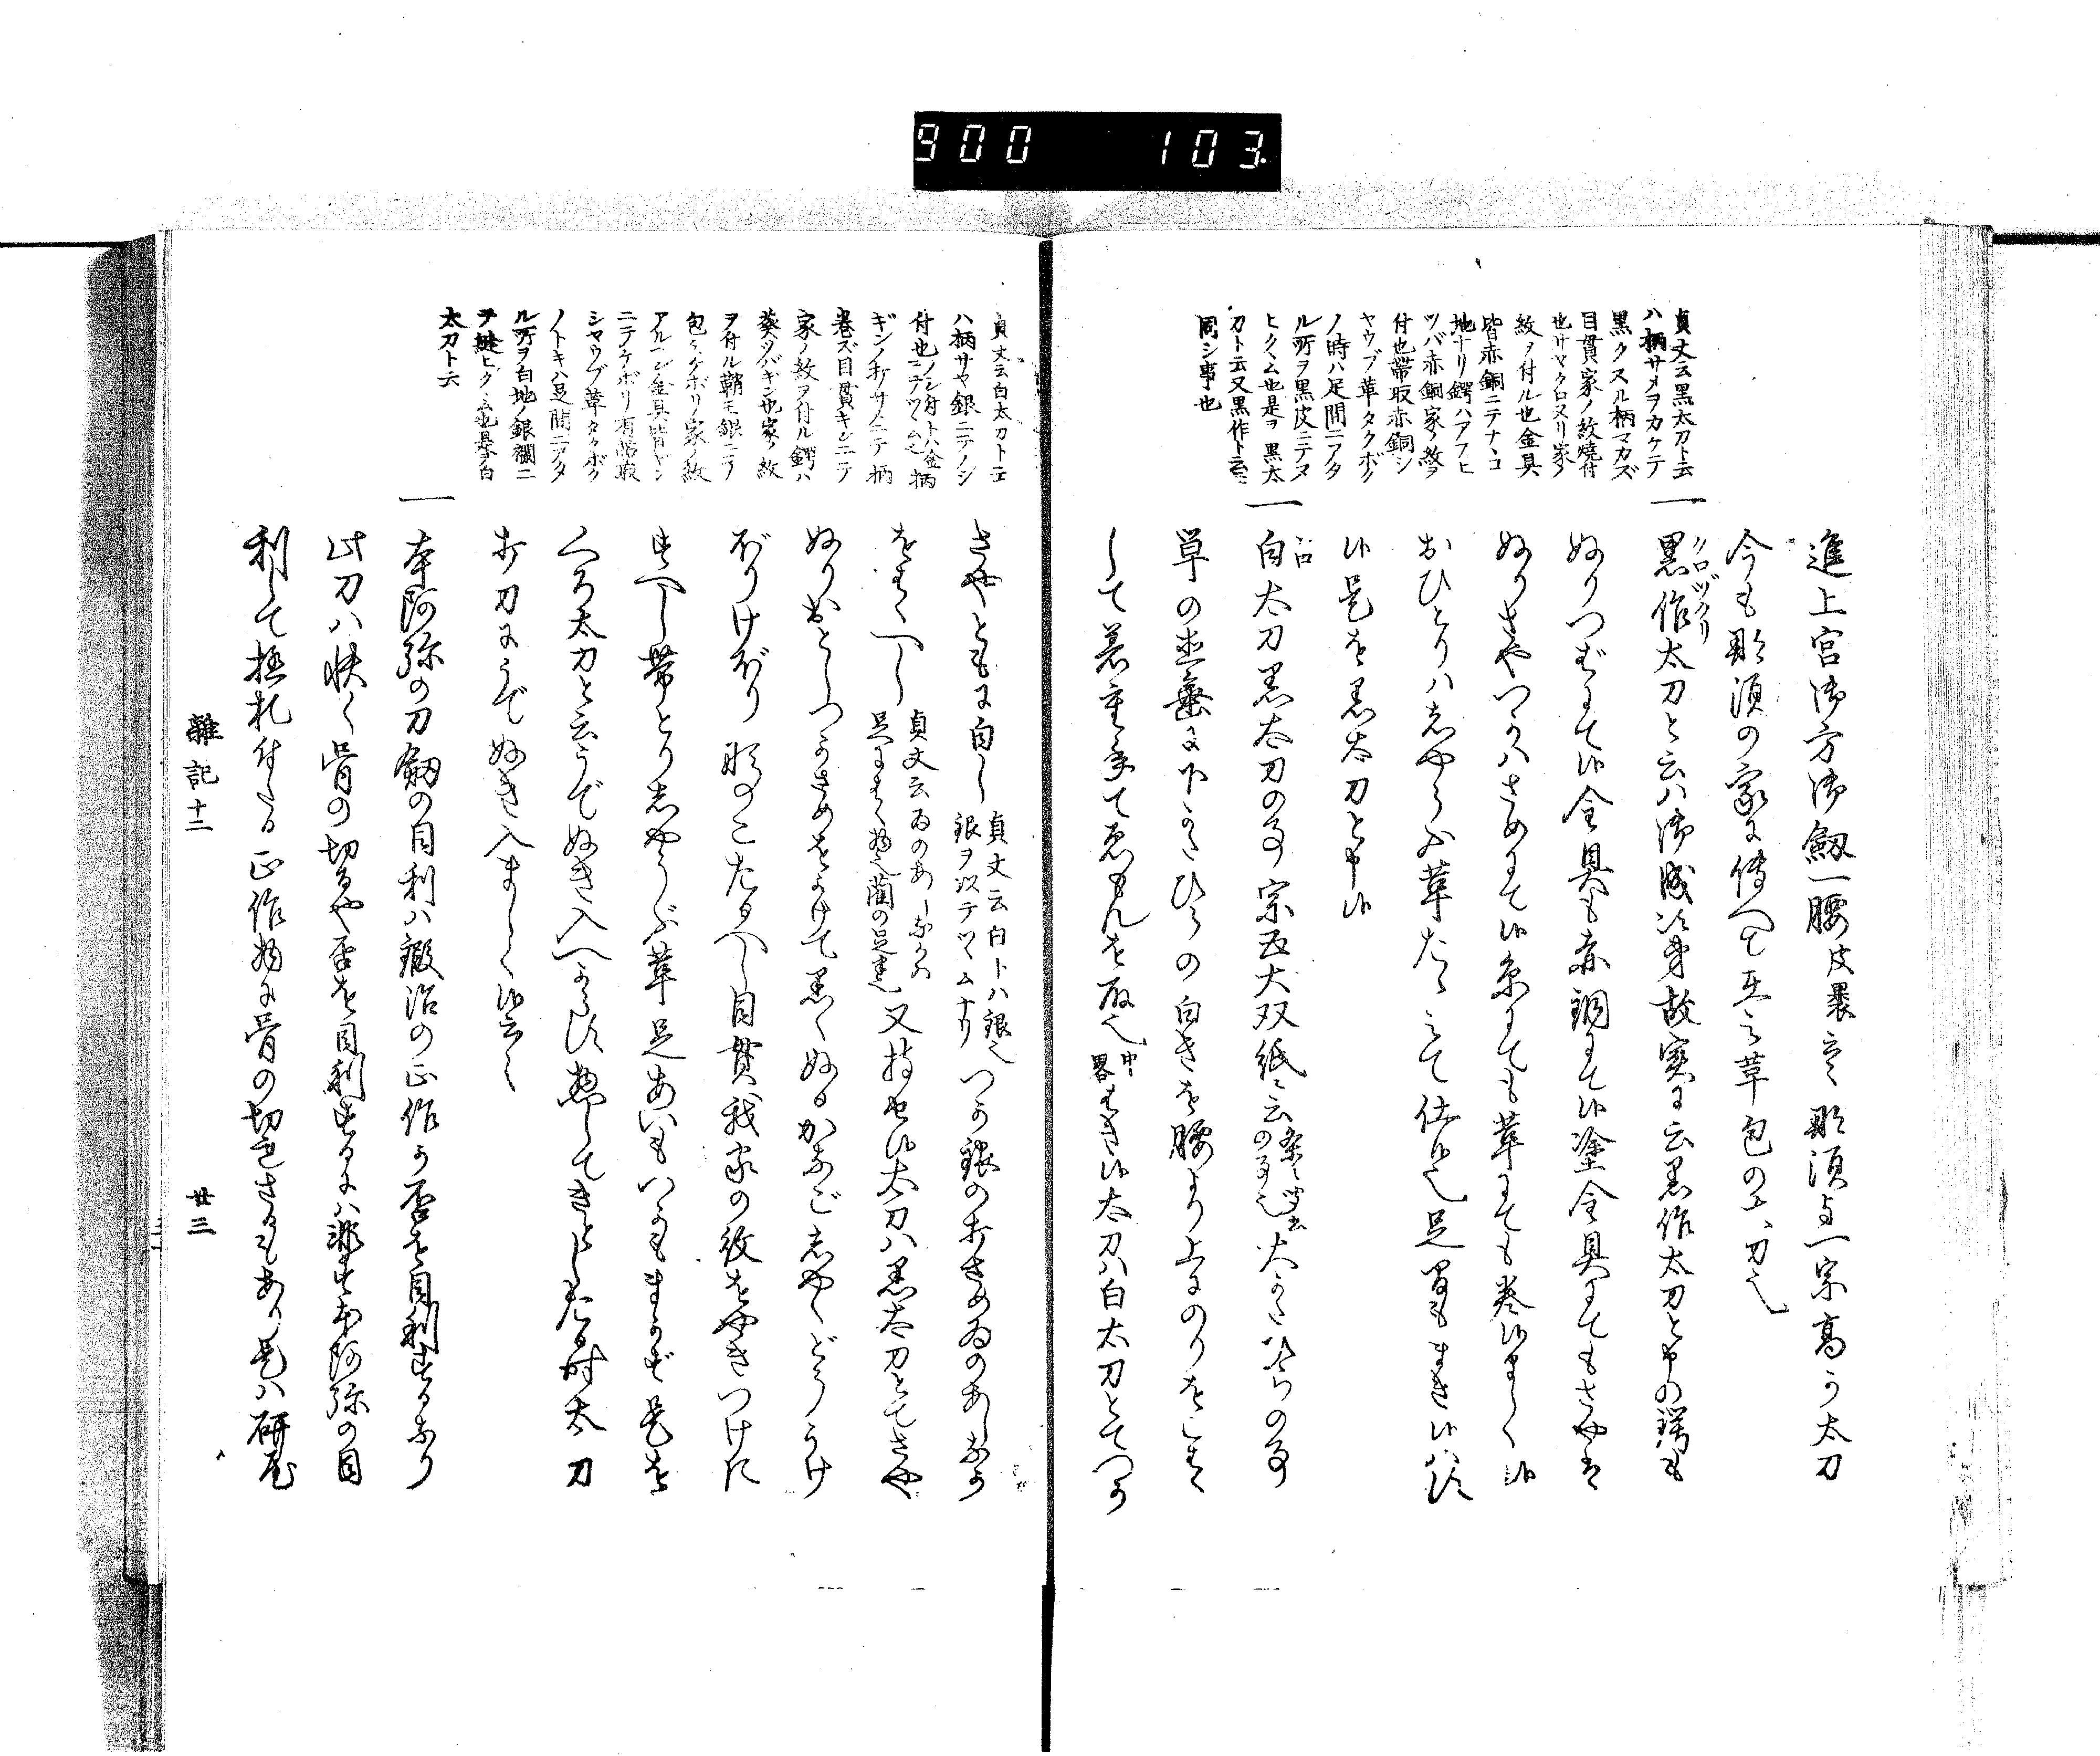 900 103.
貞丈云黒太刀ト云
ハ柄サメヲカケテ
黒クスル柄マカズ
目貫家ノ紋焼付
也サヤクロヌリ家ノ
紋ヲ付ル也金具
皆赤銅ニテナヽコ
地ナリ鍔ハアフヒ
ツバ赤銅家ノ紋ヲ
付也帯取赤銅シ
ヤウブ革タクボク
ノ時ハ足間ニアタ
ル所ヲ黒皮ニテヌ
ヒクヽム也是ヲ黒太
刀ト云又黒作ト云
同シ事也
進上宮御方御剱一腰皮裹云々那須与一宗高か太刀
今も那須の家に傳へて在之革包の太刀也
一黒作太刀と云ハ御成次第故実に云黒作太刀と申の鍔も
クロヅクリ
ぬりつばにて候金具も赤銅にて候塗金具にてもさやは
ぬりさやつかハさめにて候糸にても革にても巻候まし く候
おひとりハしやうふ革たるへく仕候也足間もまき候ハす
候是を黒太刀と申候
一白太刀黒太刀の事宗五大双紙ニ云 大かたひらの事
シロ
単の直垂に下にかたひらの白きを腰より上にのりをこはく
して着重候てゑもんを取也 中畧 はき候太刀ハ白太刀とてつか
貞丈云白太刀ト云
ハ柄サヤ銀ニテノシ
付也ノシ付トハ金
ニテツヽム也柄
ギンノ打サメニテ柄
巻ズ目貫ギンニテ
家ノ紋ヲ付ル鍔ハ
葵ツバギン也家ノ紋
ヲ付ル鞘モ銀ニテ
包ミケボリ家ノ紋
アルヘシ金具皆ギン
ニテケボリ有帯取
シヤウブ革タクボク
ノトキハ足間ニアタ
ル所ヲ白地ノ銀襴ニ
テ縫ヒクヽム也是ヲ白
太刀ト云
さやともに白し 貞丈云白トハ銀也 銀ヲ以テツヽムナリ つか銀の打さめゐのあしなか
をはくへし 貞丈云ゐのあしなかハ 足にはく物也藺の足半也 又持せ候太刀ハ黒太刀とてさや
ぬりおとしつかさめをかけて黒くぬるかなごしやくどうかけ
ぼりけぼり 形のことたるへし目貫我家の紋をやきつけに
すへし帯とりしやうぶ革足あいもいかにもまかず是を
くろ太刀と云うでぬき入へからす惣してきとしたる時太刀
打刀にうでぬき入まし く候云々
一本阿弥の刀剱の目利ハ鍛冶の正作か否を目利するなり
此刀ハ快く骨の切るや否を目利するにハ非す本阿弥の目
利して極札付たる正作物に骨の切れさるもあり是ハ研屋
雜記十二
廿三